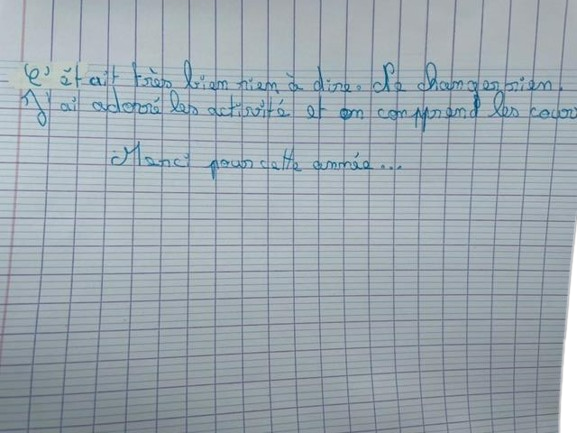 C'était très bien rien à dire. Ne changer rien.
J'ai adorré les activité et on comprend les cours
Merci pour cette année...